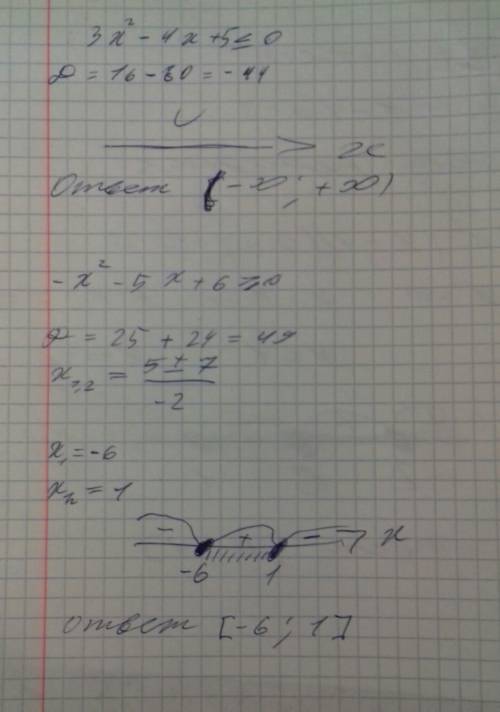 3x² - 4x + 5 ≤ 0
D = 16 - 60 = -44
x
Ответ (-∞; +∞)
-x² - 5x + 6 ≥ 0
D = 25 + 24 = 49
x₁,₂ = 5 ± 7 / -2
x₁ = -6
x₂ = 1
- + - x
-6 1
ответ [-6; 1]